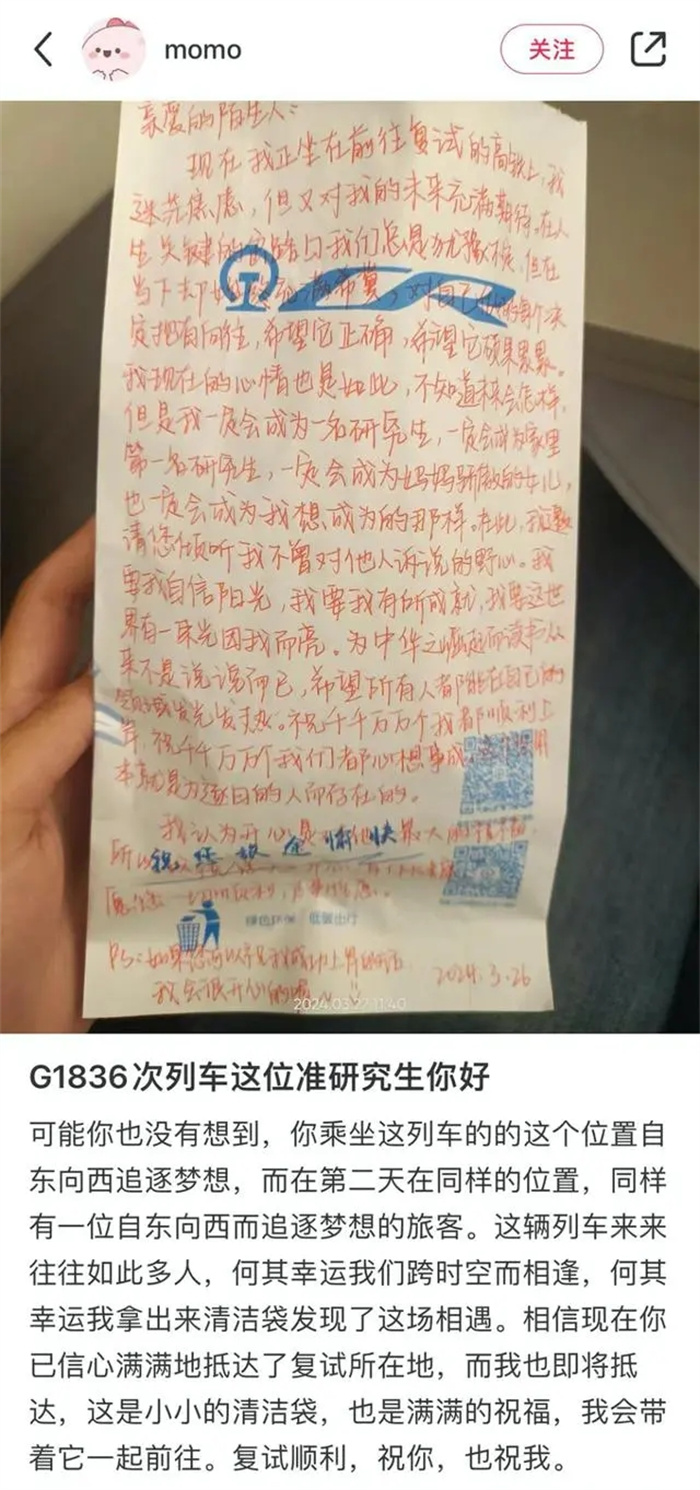 momo
关注
亲爱的陌生人:
现在我正坐在前往复试的高铁上,我
迷茫焦虑,但又对我的未来充满期待。在人
生关键的岔路口我们总是犹豫不决,但在
当下却 满希冀,对自己 的每个决
定抱有向往,希望它正确,希望它硕果累累。
我现在的心情也是如此,不知道未来会怎样,
但是我一定会成为一名研究生,一定会成为家里
第一名研究生,一定会成为妈妈骄傲的女儿,
也一定会成为我想成为的那样。在此,我邀
请您倾听我不曾对他人诉说的野心。我
要我自信阳光,我要我有所成就,我要这世
界有一束光因我而亮。为中华之崛起而读书从
来不是说说而已,希望所有人都能在自己的
领域发光发热。祝千千万万个我都顺利上
岸,祝千千万万个我们都心想事成,
本就是为逐日的人而存在的。
我认为开心是 最大的
所以 祝 您 旅 途 愉 快
愿您一切顺利,
绿色环保 低碳出行
PS:如果您 的话
我会很开心的 2024.3.26
2024.03.27 11:40
G1836次列车这位准研究生你好
可能你也没有想到,你乘坐这列车的的这个位置自
东向西追逐梦想,而在第二天在同样的位置,同样
有一位自东向西而追逐梦想的旅客。这辆列车来来
往往如此多人,何其幸运我们跨时空而相逢,何其
幸运我拿出来清洁袋发现了这场相遇。相信现在你
已信心满满地抵达了复试所在地,而我也即将抵
达,这是小小的清洁袋,也是满满的祝福,我会带
着它一起前往。复试顺利,祝你,也祝我。